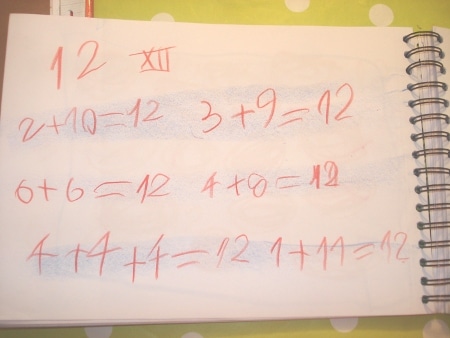 12 XII
2+10=12 3+9=12
6+6=12 4+8=12
4+4+4=12 1+11=12